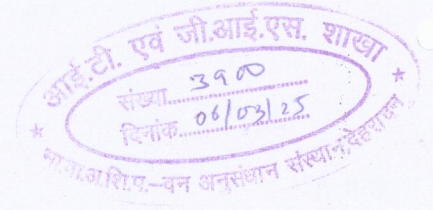 आई.टी. एवं जी.आई.एस. शाखा
संख्या 3900
दिनांक 06/03/25
भा.वा.अ.शि.प.–वन अनुसंधान संस्थान, देहरादून